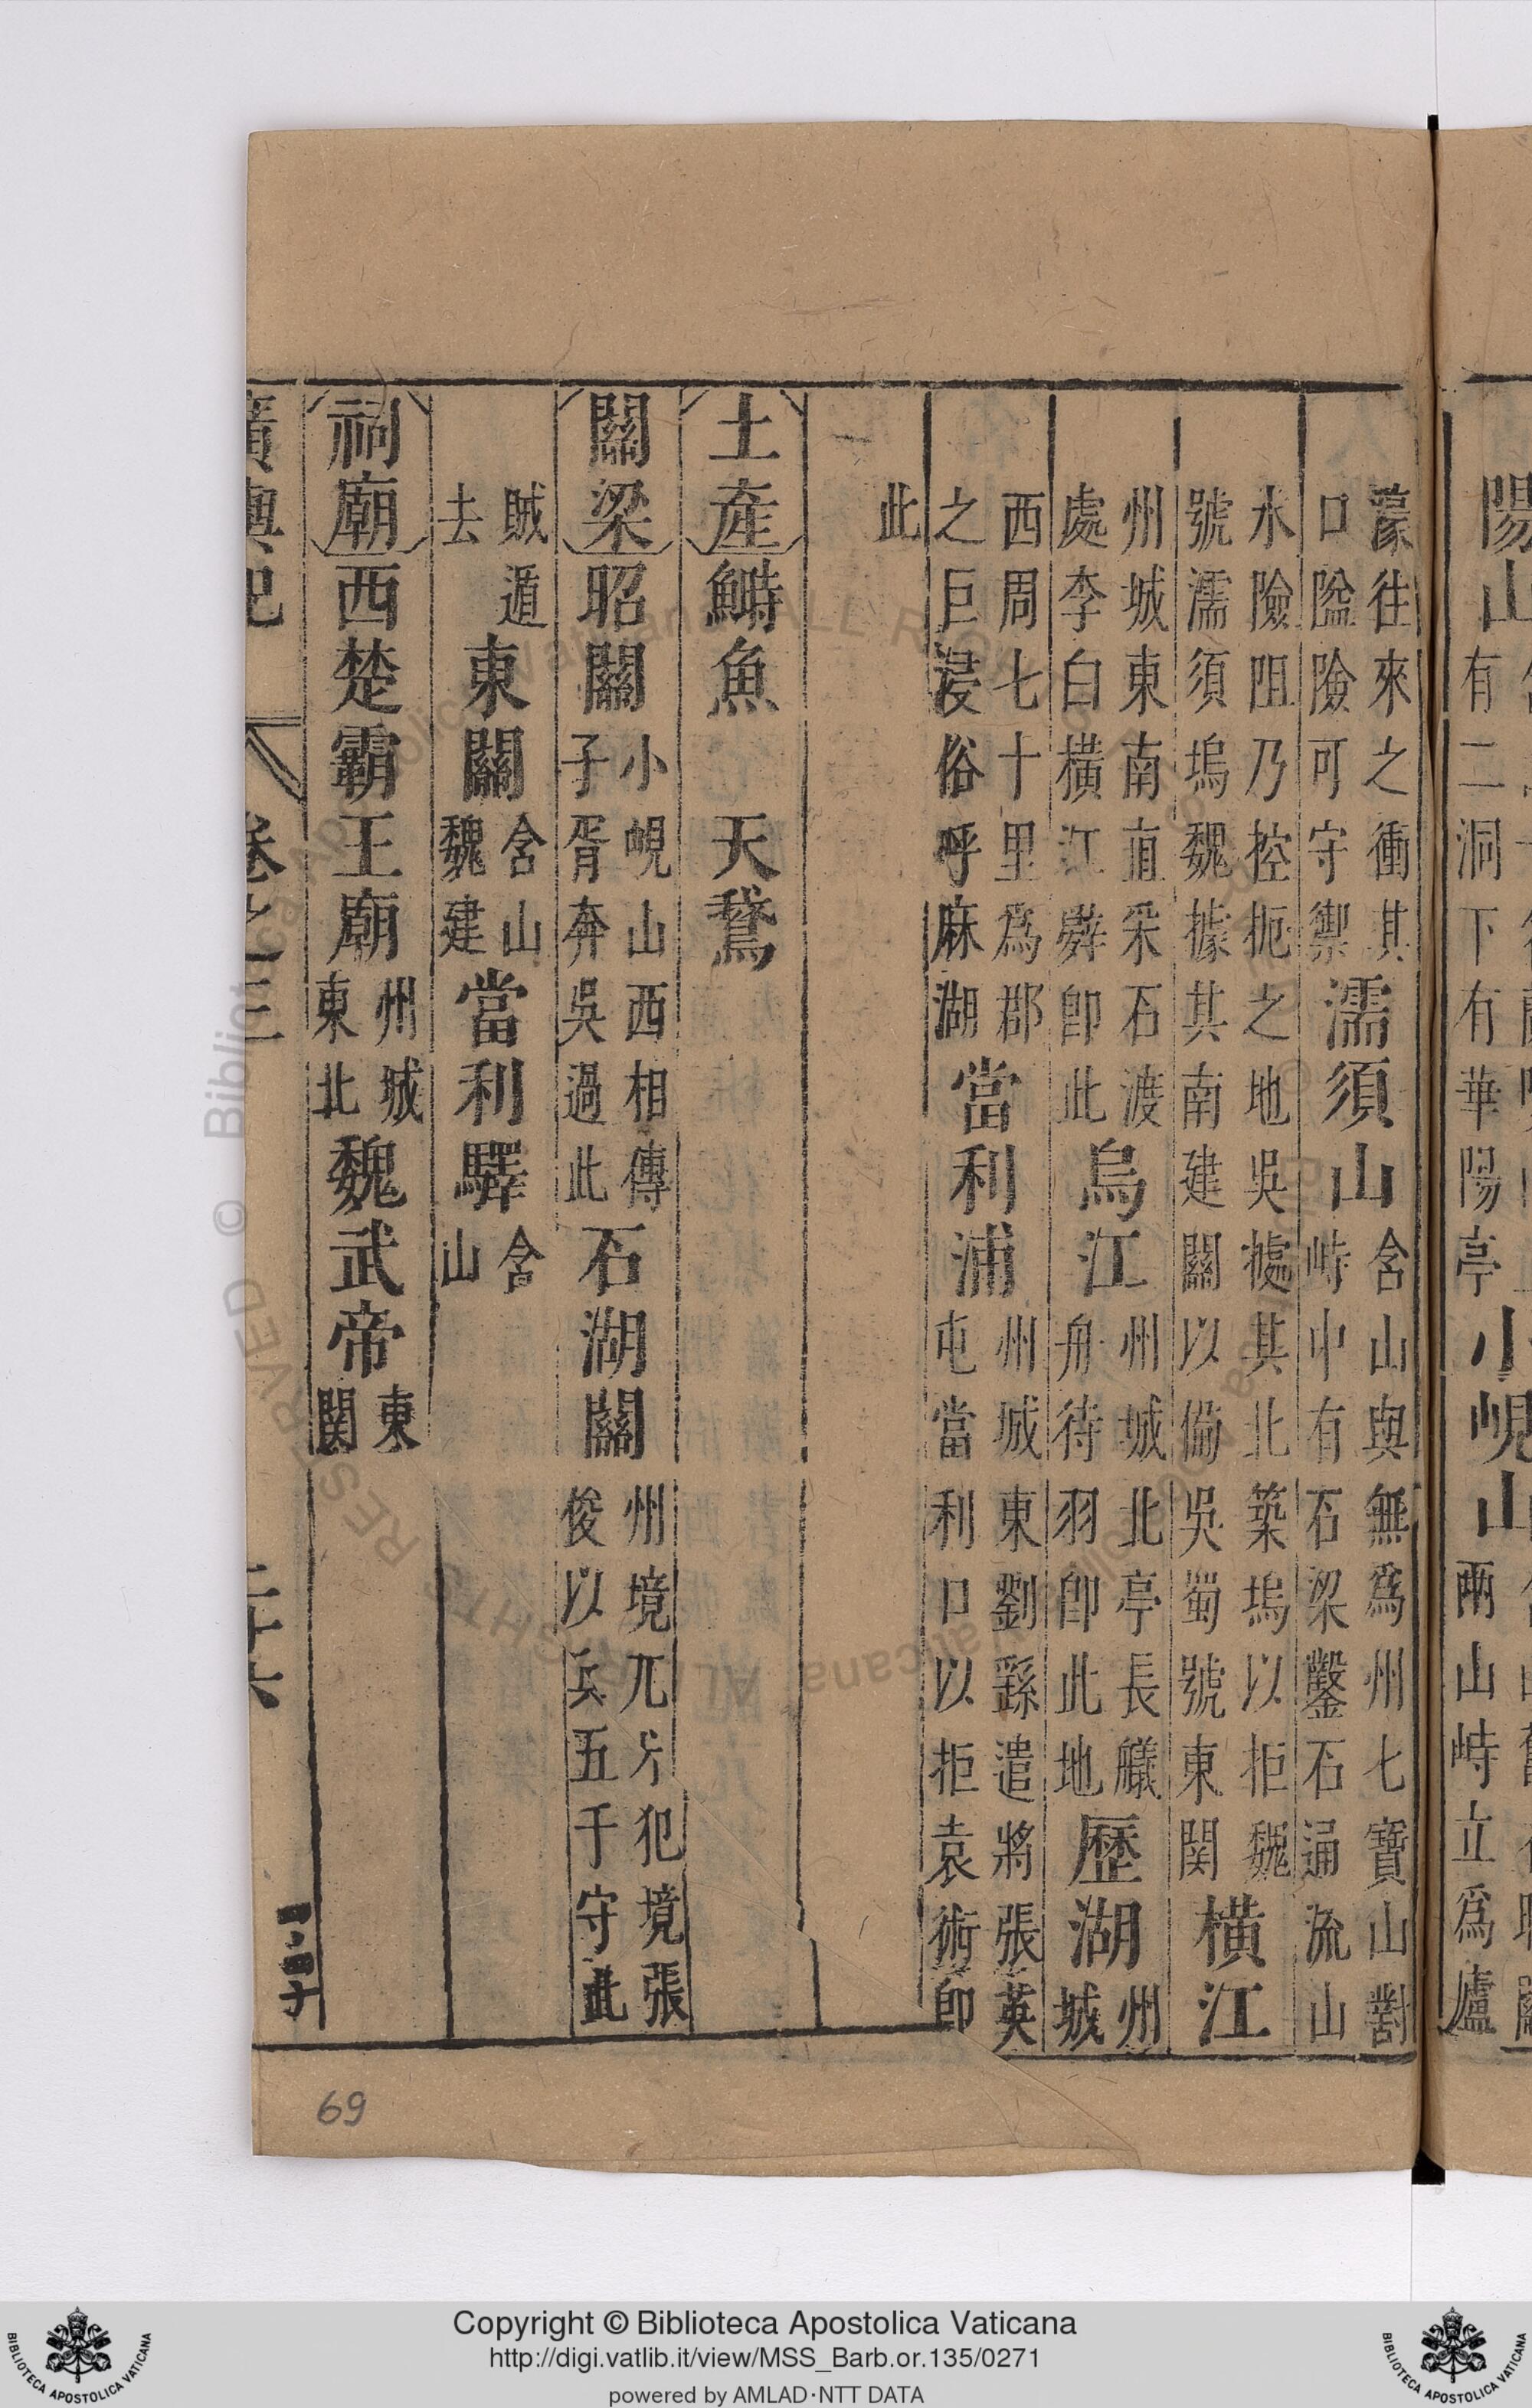 陽山有二洞下有華陽亭小峴山兩山峙立爲廬
濠往來之衝其
口隘險可守禦
濡須山
含山與無爲州七寶山對
峙中有石梁鑿石通流山
水險阻乃控扼之地吳據其北築塢以拒魏
號濡須塢魏據其南建關以備吳蜀號東関
橫江
州城東南直采石渡
處李白橫江辭即此
烏江
州城北亭長艤
舟待羽即此地
歷湖
州
城
西周七十里爲郡
之巨浸俗呼麻湖
當利浦
州城東劉繇遣將張英
屯當利口以拒袁術即
此
土產 鰣魚 天鵞
關梁 昭關
小峴山西相傳
子胥奔吳過此
石湖關
州境兀朮犯境張
俊以兵五千守此
賊遁
去
東關
含山
魏建
當利驛
含
山
祠廟 西楚霸王廟
州城
東北
魏武帝
東
関
廣輿記 卷之三 二十六
69
Copyright © Biblioteca Apostolica Vaticana
http://digi.vatlib.it/view/MSS_Barb.or.135/0271
powered by AMLAD·NTT DATA
BIBLIOTECA APOSTOLICA VATICANA
BIBLIOTECA APOSTOLICA VATICANA